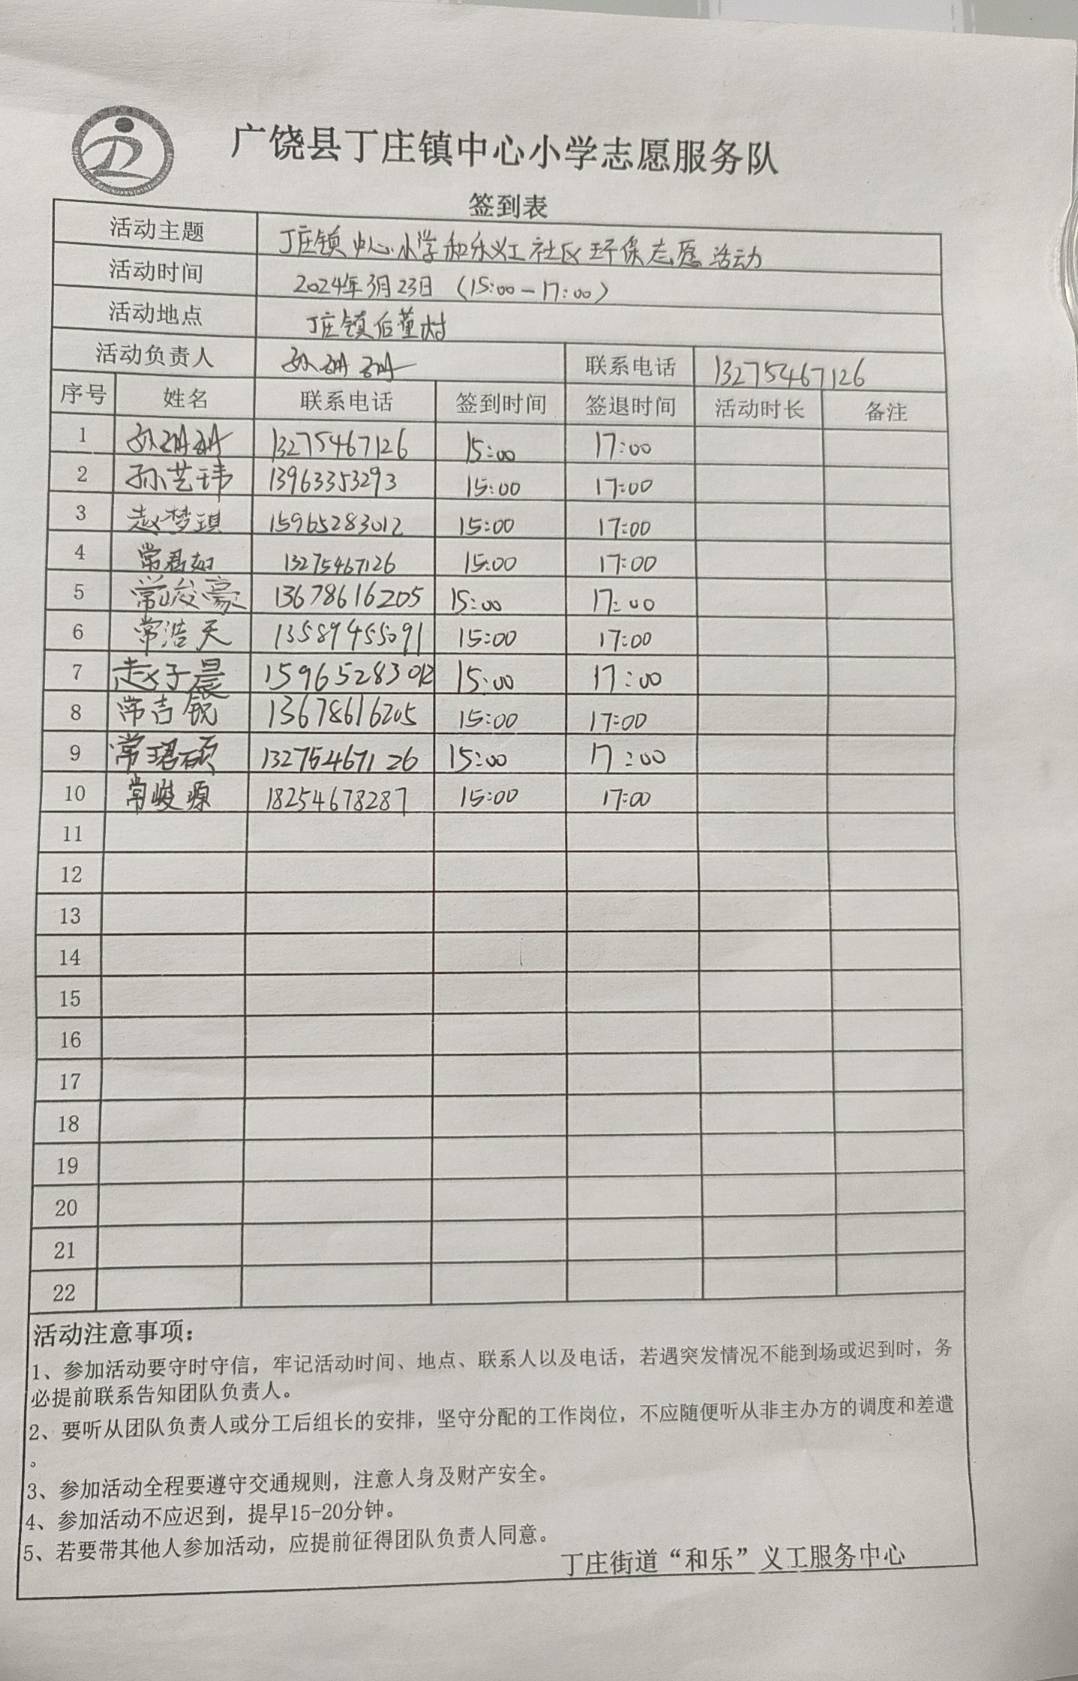 广饶县丁庄镇中心小学志愿服务队
签到表
活动主题 丁庄镇中心小学和乐义工社区环保志愿活动
活动时间 2024年3月23日（15:00-17:00）
活动地点 丁庄镇后董村
活动负责人 孙珊珊 联系电话 13275467126
序号 姓名 联系电话 签到时间 签退时间 活动时长 备注
1 孙珊珊 13275467126 15:00 17:00
2 孙艺玮 13963353293 15:00 17:00
3 赵梦琪 15965283012 15:00 17:00
4 常君如 13275467126 15:00 17:00
5 常峻豪 13678616205 15:00 17:00
6 常浩天 13589455091 15:00 17:00
7 赵子晨 15965283012 15:00 17:00
8 常吉锐 13678616205 15:00 17:00
9 常珺硕 13275467126 15:00 17:00
10 常峻源 18254678287 15:00 17:00
11
12
13
14
15
16
17
18
19
20
21
22
活动注意事项：
1、参加活动要守时守信，牢记活动时间、地点、联系人以及电话，若遇突发情况不能到场或迟到时，务
必提前联系告知团队负责人。
2、要听从团队负责人或分工后组长的安排，坚守分配的工作岗位，不应随便听从非主办方的调度和差遣
。
3、参加活动全程要遵守交通规则，注意人身及财产安全。
4、参加活动不应迟到，提早15-20分钟。
5、若要带其他人参加活动，应提前征得团队负责人同意。
丁庄街道“和乐”义工服务中心